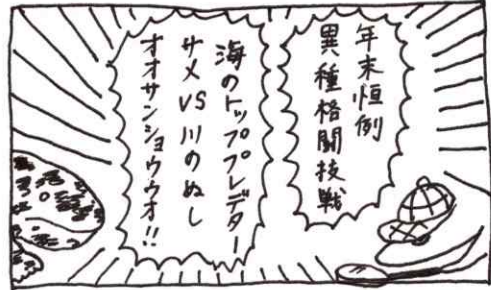 年末恒例
異種格闘技戦
海のトッププレデター
サメVS川のぬし
オオサンショウウオ!!